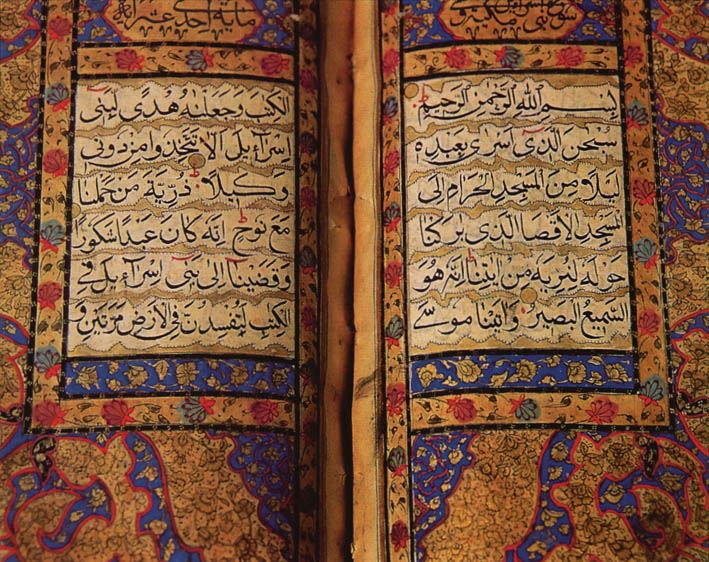 سورة بنی اسرائیل مکیة وهی
بِسْمِ اللهِ الرَّحْمٰنِ الرَّحِيْمِ
سُبْحٰنَ الَّذِيٓ اَسْرٰى بِعَبْدِهٖ
لَيْلًا مِنَ الْمَسْجِدِ الْحَرَامِ اِلَى
لْمَسْجِدِ الْاَقْصَا الَّذِي بٰرَكْنَا
حَوْلَهٗ لِنُرِيَهٗ مِنْ اٰيٰتِنَا اِنَّهٗ هُوَ
السَّمِيْعُ الْبَصِيْرُ وَاٰتَيْنَا مُوسَى
مایة احدی عشرة ایة
الْكِتٰبَ وَجَعَلْنٰهُ هُدًى لِبَنِيٓ
اِسْرَآءِيلَ اَلَّا تَتَّخِذُوا مِنْ دُونِي
وَكِيلًا ذُرِّيَّةَ مَنْ حَمَلْنَا
مَعَ نُوحٍ اِنَّهٗ كَانَ عَبْدًا شَكُورًا
وَقَضَيْنَآ اِلٰى بَنِيٓ اِسْرَآءِيلَ فِي
الْكِتٰبِ لَتُفْسِدُنَّ فِي الْاَرْضِ مَرَّتَيْنِ وَ